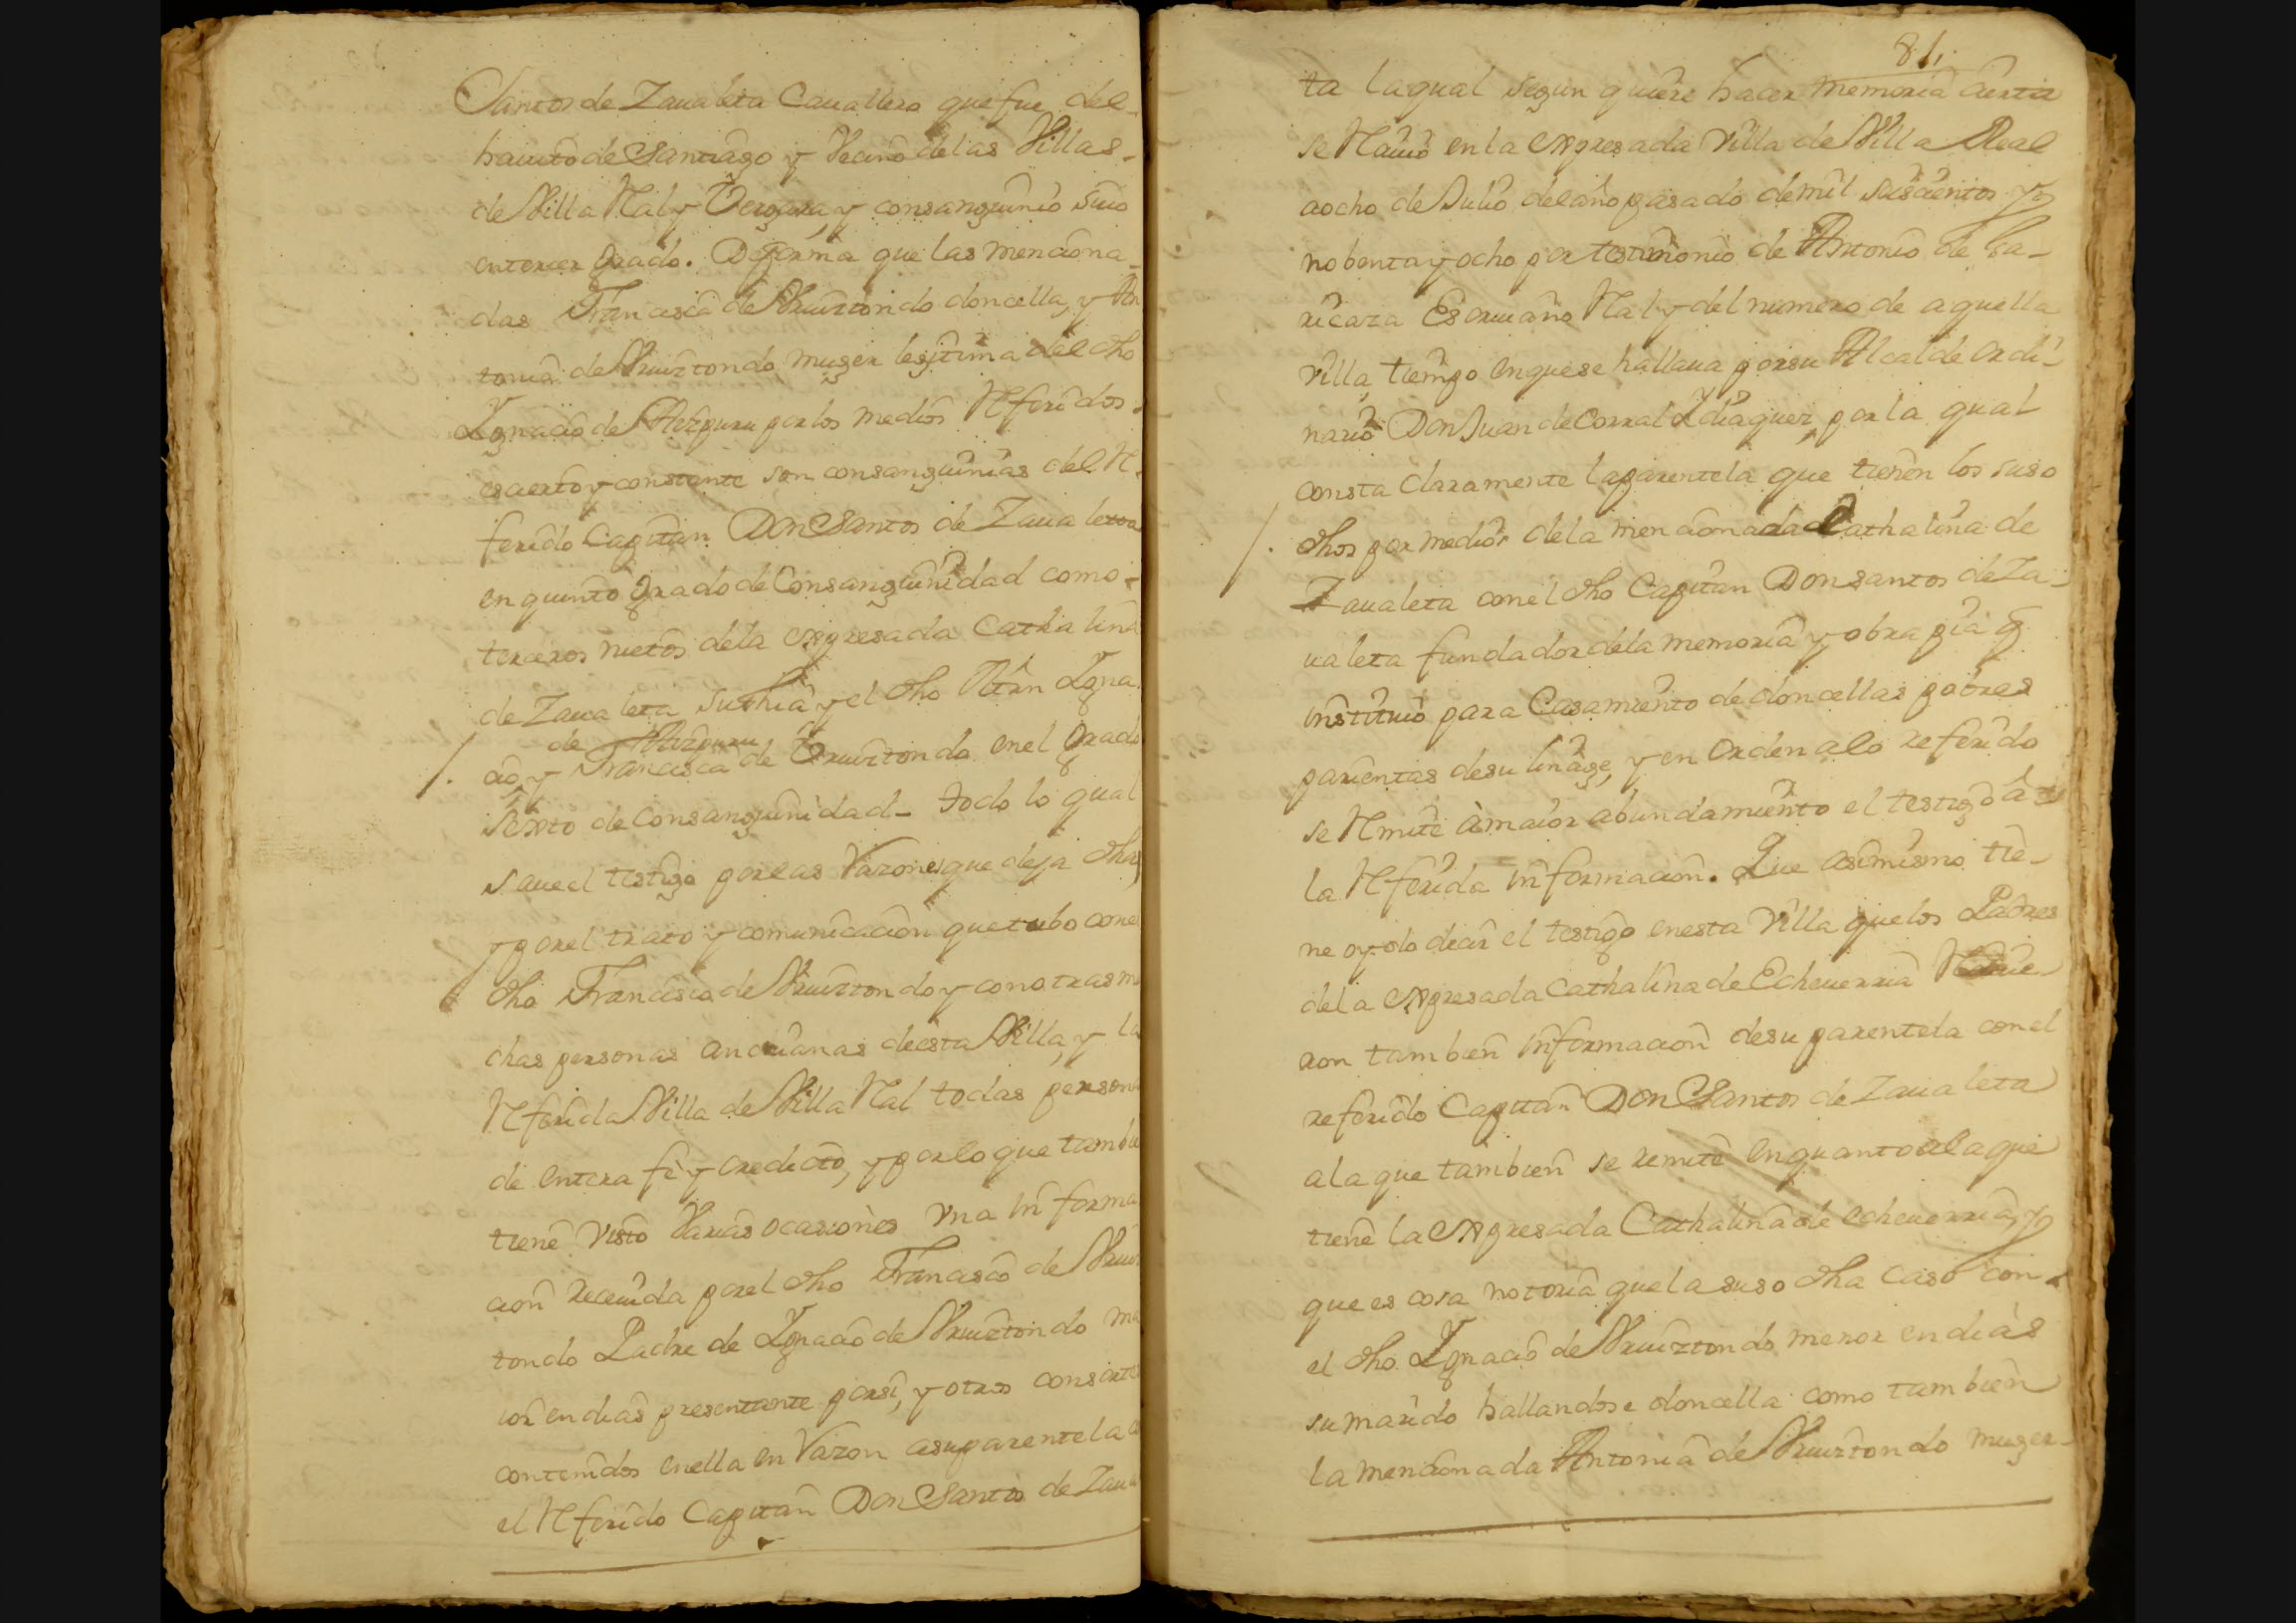 Santos de Zaualeta Cauallero que fue del
hauito de Santiago y Vecino de las Villas
de Villa Rl y Vergara, y consanguinio suio
en tercer grado. De forma que las menciona
das Francisca de Vruiztondo doncella, y An
tonia de Vruiztondo muger legitima del dho
Ygnacio de Aezpuru por los medios Referidos
es cierto y constante son consanguinias del Re
ferido Capitan Don Santos de Zaualeta
en quinto grado de Consanguinidad como
terceros nietos de la expresada Cathalina
de Zaualeta su thia y el dho Ygna
de Aezpuru
cio, y Francisca de Vruiztondo en el grado
sexto de Consanguinidad todo lo qual
saue el testigo por las Razones que deja dhas
y por el trato y comunicacion que tubo con el
dho Francisco de Vruiztondo y con otras mu
chas personas ancianas de esta Villa, y la
Referida Villa de Villa Rl todas persona
de entera fè y credicto, y por lo que tambie
tiene visto Varias ocasiones vna informa
cion receuida por el dho Francisco de Vruiz
tondo Padre de Ygnacio de Vruiztondo ma
ior en dias presentante por si, y otros consorte
contenidos en ella en Razon a su parentela co
el Referido Capitan Don Santos de Zaua
81,
ta la qual segun quiere hacer memoria cierta
se Reciuio en la expresada Villa de Villa Real
a ocho de Julio del año pasado de mil seiscientos y
nobenta y ocho por testimonio de Antonio de Ga
ricaza Escriuano Rl y del numero de aquella
villa, tiempo en que se hallaua por su Alcalde ordi
nario Don Juan de Corral Ydiaquez, por la qual
consta claramente la parentela que tienen los suso
dhos por medio de la mencionada Cathalina de
Zaualeta con el dho Capitan Don Santos de Za
ualeta fundador de la memoria y obra pia q
instituio para Casamiento de doncellas pobres
parientas de su linage, y en orden a lo referido
se Remite à maior abundamiento el testigo â
la Referida informacion. Que asimismo tie
ne oydo decir el testigo en esta Villa que los Padres
de la expresada Cathalina de Echeuerria Reciuie
ron tambien informacion de su parentela con el
referido Capitan Don Santos de Zaualeta
a la que tambien se remite en quanto a la que
tiene la expresada Cathalina de echeuerria, y
que es cosa notoria que la suso dha caso con
el dho Ygnacio de Vruiztondo menor en dias
su marido hallandose doncella como tambien
la mencionada Antonia de Vruiztondo muger